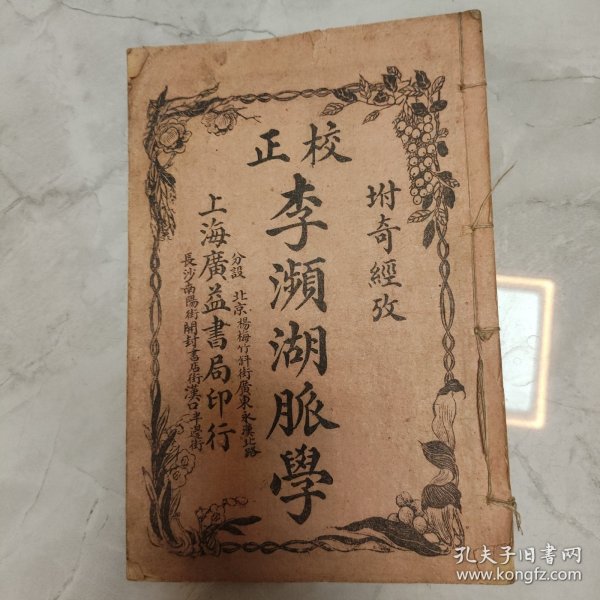 校正
坿奇經攷
李瀕湖脈學
上海廣益書局印行
分設 北京楊梅竹斜街廣東永漢北路
長沙南陽街開封書店街漢口半邊街
孔夫子旧書网
www.kongfz.com